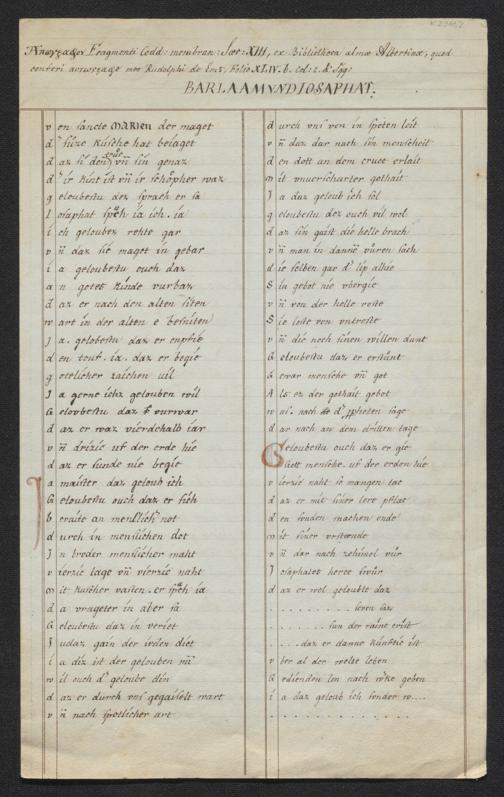 Απογραφον Fragmenti Codd: membran: Sæc: XIII, ex Bibliotheca almæ Albertinæ, quod
conferi mer Rudolphi de Ems, Folio XLIV. b. Col: 2. & Sqq:
BARLAAM VND IOSAPHAT.
v on sancte MARIEN der maget
d' sihze Kusche hat beiaget
d az si den vñ sin genaz
d' ir Kint ist vñ ir schöpher waz
g eloubestu dez sprach er sa
I osaphat spͣch ia ich. ia
i ch geloubez rehte gar
v ñ daz sie maget in gebar
i a geloubestu ouch daz
a n gotes Kinde vurbaz
d az er nach den alten siten
w art in der alten e besniten
J a. gelobestu daz er enpfie
d en touf. ia. daz er begie
g otelicher zaichen vil
J a gerne ichz gelouben wil
G elovbestu daz vurwar
d az er waz vierdehalb iar
v ñ drizic uf der erde hie
d az er sunde nie begie
a maister daz geloub ich
G eloubestu ouch daz er sich
b eraite an menslich' not
d urch in menslichen dot
J n broder menslicher maht
v ierzic tage vñ vierzic naht
m it Kuscher vasten. er spͣch ia
d a vrageter in aber sa
G eloubestu daz in veriet
J udaz gain der ivden diet
i a diz ist der gelouben mī
w il ouch d' geloube din
d az er durch vns gegaiselt wart
v ñ nach spotlicher art
d urch vns von in speten leit
v ñ daz dar nach sin menscheit
d en dott an dem cruce erlait
m it vnverschurter gothait
J a daz geloub ich sol
g eloubestu dez ouch vil wol
d az sin gaist die helle brach
v ñ man in dannē vůren sach
d ie selben gar d' lip alhie
S in gebot nie vbergie
v ñ von der helle roste
S ie loste von vntroste
v ñ die noch sinen willen dunt
G eloubestu daz er erstůnt
G ewar mensche vñ got
A ls ez der gothait gebot
w al. nach d' ppheten sage
d ar nach an dem dritten tage
Geloubestu ouch daz er gie
Gott mensche. uf der erden hie
v ierzic naht so mangen tac
d az er mit siner lere pflac
d en sunden machen ende
m it siner vrstende
v ñ dar nach zehimel vůr
J osaphatet herre swůr
d az er wol geloubte daz
. . . . . . . . . seren saz
. . . . . . . sun der raine crist
. . . . daz er danne Künftic ist
v ber al der welte leben
G edienden lon nach wͦke geben
i a daz geloub ich sonder w....
. . . . . . . . . . . . .